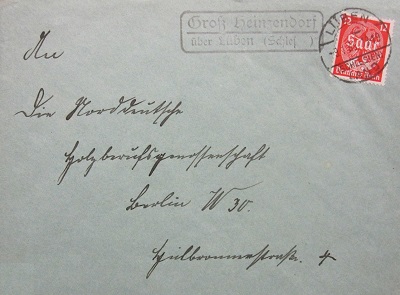 Groß Heinzendorf
über Lüben (Schles.)
LÜBEN
12
Saar
Deutsches Reich
An
Die Norddeutsche
Holzberufsgenossenschaft
Berlin W 30.
Heilbronnerstraße. 4